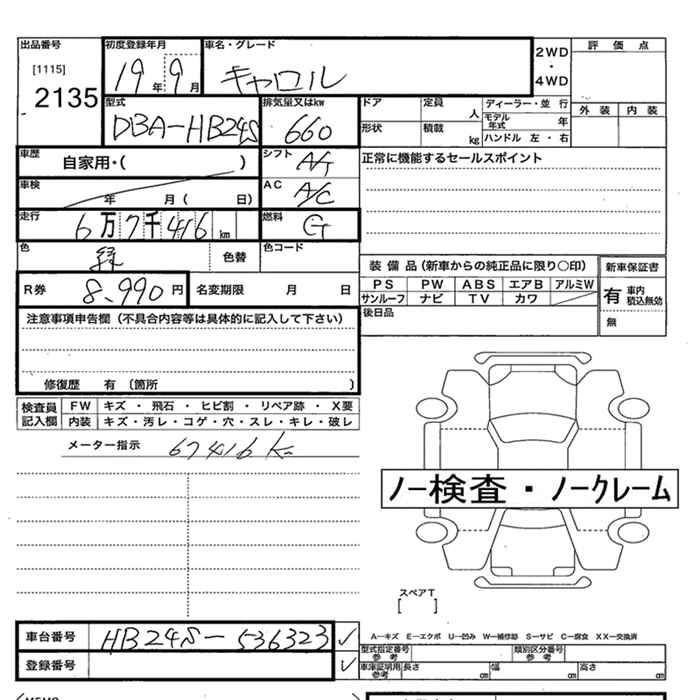 出品番号 初度登録年月 車名・グレード 2WD・4WD 評価点
[1115] 2135 19年 9月 キャロル 外装 内装
型式 排気量又はkw ドア 定員 人 ディーラー・並行
DBA-HB24S 660 形状 積載 kg モデル年式 年 ハンドル 左・右
車歴 自家用・( ) シフト A/T 正常に機能するセールスポイント
車検 年 月( 日) AC A/C
走行 6万7千416 km 燃料 G
色 緑 色替 色コード
装備品(新車からの純正品に限り○印) 新車保証書
R券 8,990円 名変期限 月 日
PS PW ABS エアB アルミW 有 車内積込無効
サンルーフ ナビ TV カワ
後日品 無
注意事項申告欄(不具合内容等は具体的に記入して下さい)
修復歴 有 〔箇所 〕
検査員記入欄 FW キズ・飛石・ヒビ割・リペア跡・X要
内装 キズ・汚レ・コゲ・穴・スレ・キレ・破レ
メーター指示 67416 K
ノー検査・ノークレーム
スペアT
[ ]
車台番号 HB24S-536323 ✓
A—キズ E—エクボ U—凹み W—補修跡 S—サビ C—腐食 XX—交換済
登録番号 ✓
型式指定番号 参考 類別区分番号 参考
車庫証明用 参考 長さ cm 幅 cm 高さ cm